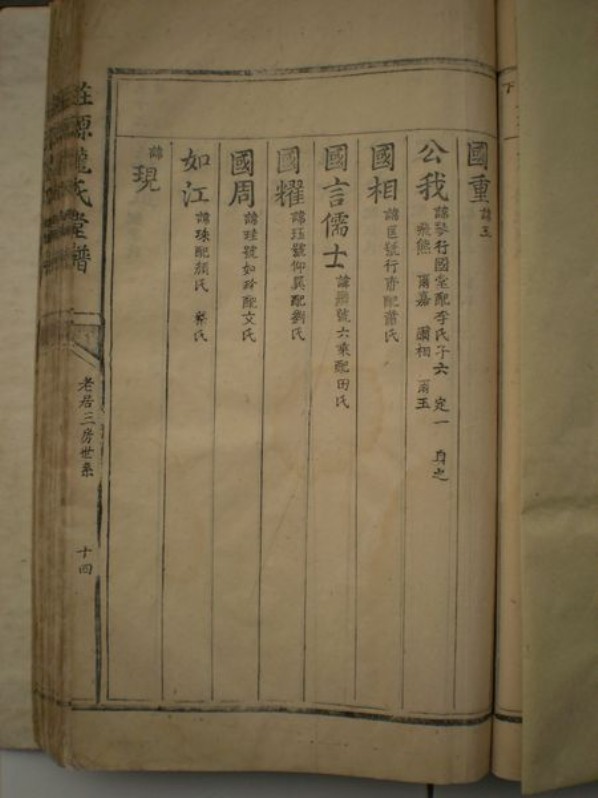 國重 諱玉
公我 諱琴行國堂配李氏子六 定一 身之
飛熊 爾嘉 國相 爾玉
國相 諱 號行 配蕭氏
國言儒士 諱 號六乘配田氏
國耀 諱珏號仰吳配劉氏
國周 諱珪號如珍配文氏
如江 諱珠配顏氏 蔡氏
諱現
莊源龍氏堂譜
老居三房世系
十四
下